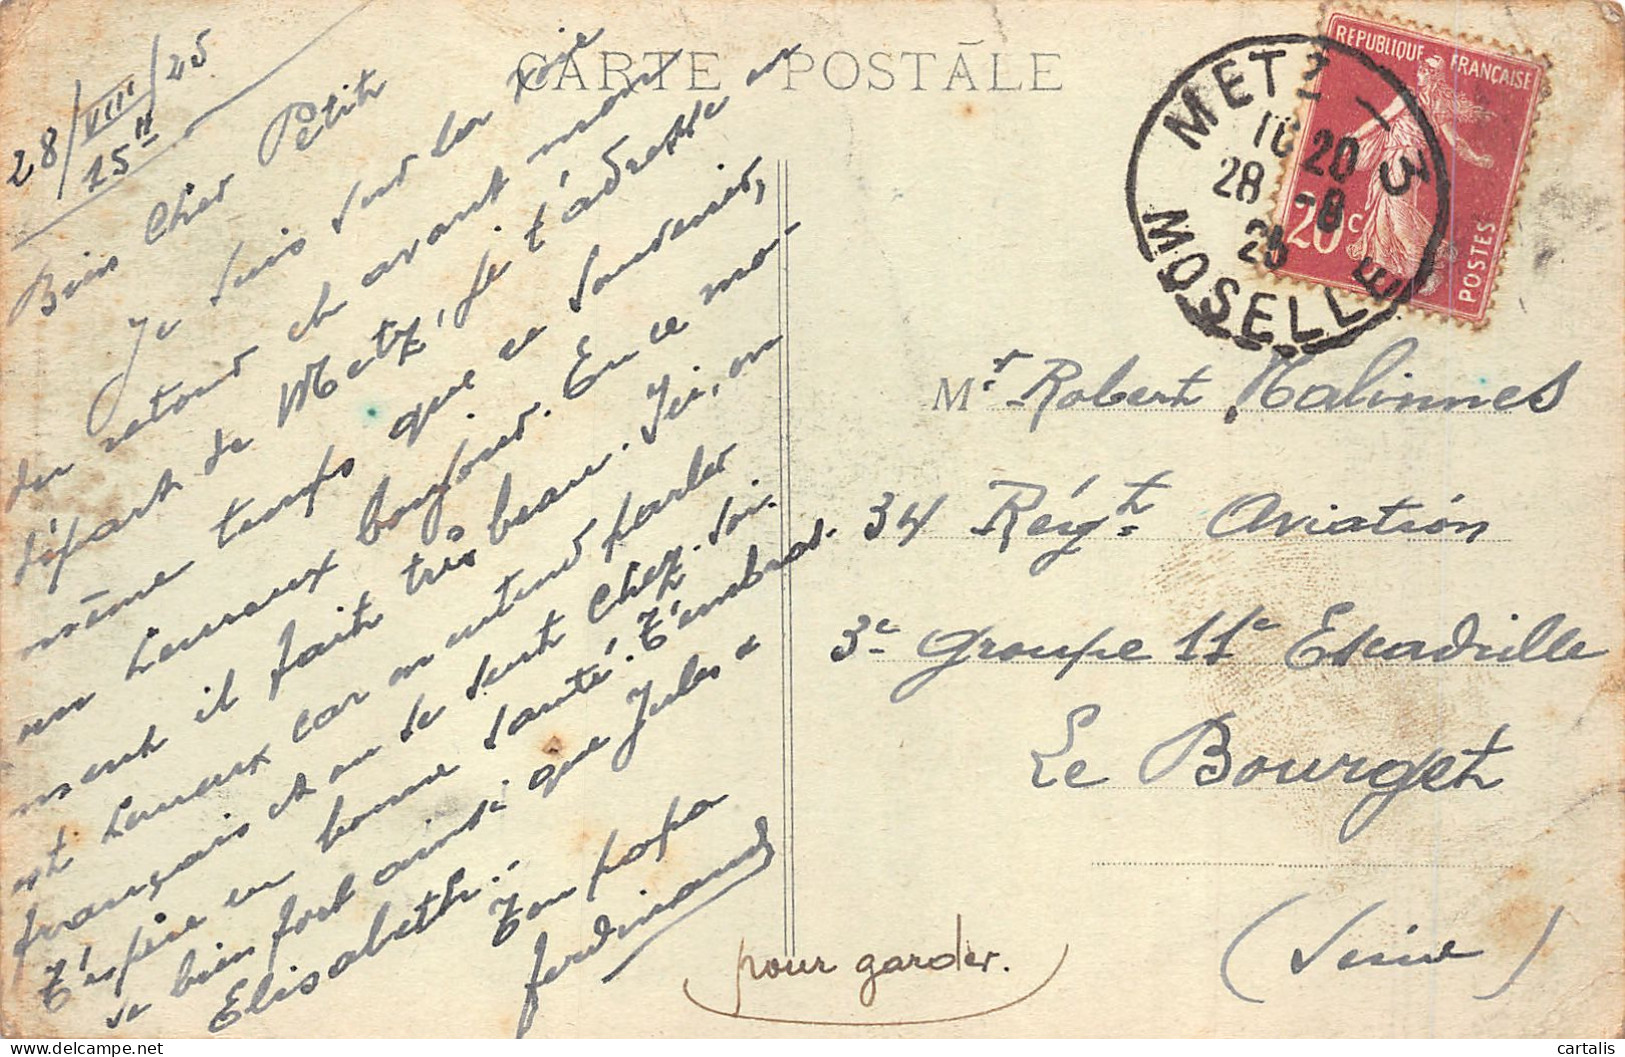 CARTE POSTALE
28/VIII/25
15 H
Bien Cher Petit
Je suis sur la voie
du retour et avant mon
départ de Metz, je t'adresse en
même temps que ce souvenir,
un heureux bonjour. En ce mo-
ment il fait très beau. Ici, on
est heureux car on entend parler
français et on se sent chez soi.
T'espère en bonne santé. T'embras-
se bien fort ainsi que Jules &
Elisabeth.
Ton papa
ferdinand
pour garder.
REPUBLIQUE FRANÇAISE
20c
POSTES
METZ - 3
20
28 -8
25
MOSELLE
Mr Robert Malinnes
34 Régt Aviation
3e Groupe 11e Escadrille
Le Bourget
(Seine)
cartalis